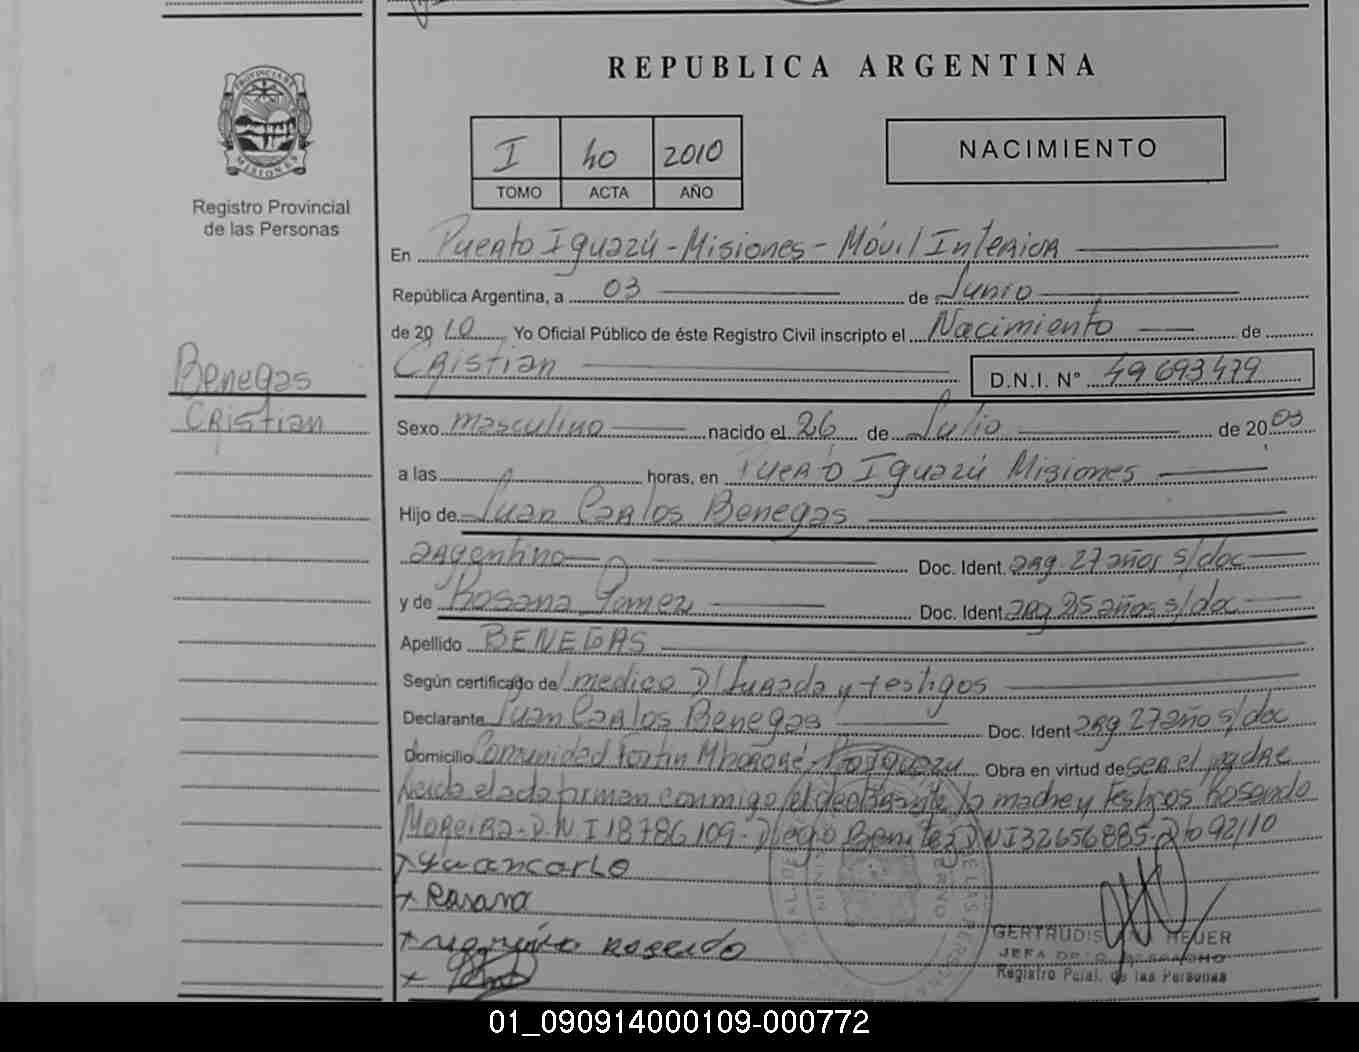 REPUBLICA ARGENTINA
PROVINCIA DE
MISIONES
Registro Provincial
de las Personas
I 40 2010
TOMO ACTA AÑO
NACIMIENTO
En Puerto Iguazú - Misiones - Móvil Interior
República Argentina, a 03 de Junio
de 2010 Yo Oficial Público de éste Registro Civil inscripto el Nacimiento de
Cristian D.N.I. Nº 49693479
Benegas
Cristian
Sexo masculino nacido el 26 de Julio de 2003
a las horas, en Puerto Iguazú Misiones
Hijo de Juan Carlos Benegas
argentino Doc. Ident. arg. 27 años s/doc
y de Rosana Gomez Doc. Ident arg 25 años s/doc
Apellido BENEGAS
Según certificado de medico D/Jurada y testigos
Declarante Juan Carlos Benegas Doc. Ident arg 27 año s/doc
Domicilio Comunidad Fortin Mbororé Obra en virtud de ser el padre
Leida el acta firman conmigo el declarante la madre y testigos Rosendo
Moreira - D.N.I 18786109 - Diego Benitez DNI 32656885 - 92/10
+ Juancarlo
+ Rosana
+ Rosendo
+
GERTRUDIS HEUER
JEFA
Registro Pcial. de las Personas
01_090914000109-000772